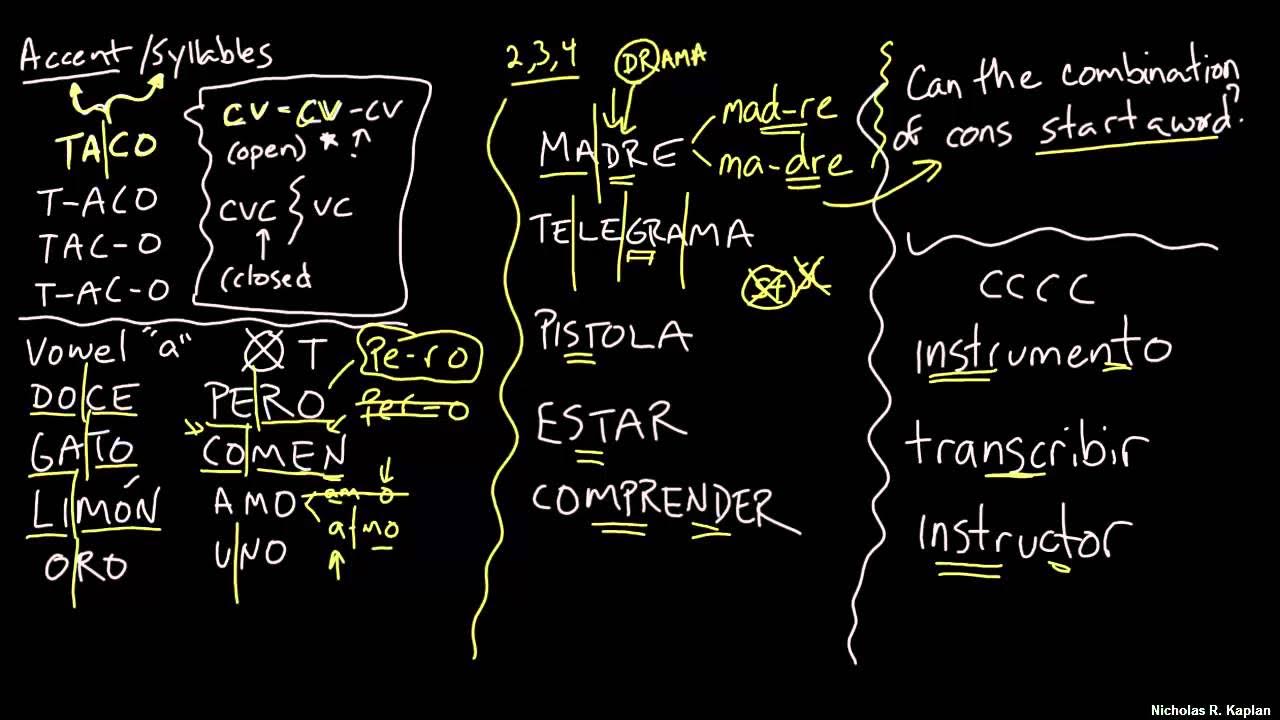 Accent/Syllables
TA|CO
T-ACO
TAC-O
T-AC-O
CV = CV-CV
(open) *
CVC } VC
(closed
Vowel "a"
T
DO|CE
GA|TO
LI|MÓN
O|RO
PE|RO
Pe-ro
per-o
CO|MEN
AMO
am o
a|mo
U|NO
2,3,4
DRAMA
MA|DRE
mad-re
ma-dre
TE|LE|GRA|MA
st sc
PISTOLA
ESTAR
COMPRENDER
Can the combination
of cons start a word?
CCCC
instrumento
transcribir
instructor
Nicholas R. Kaplan